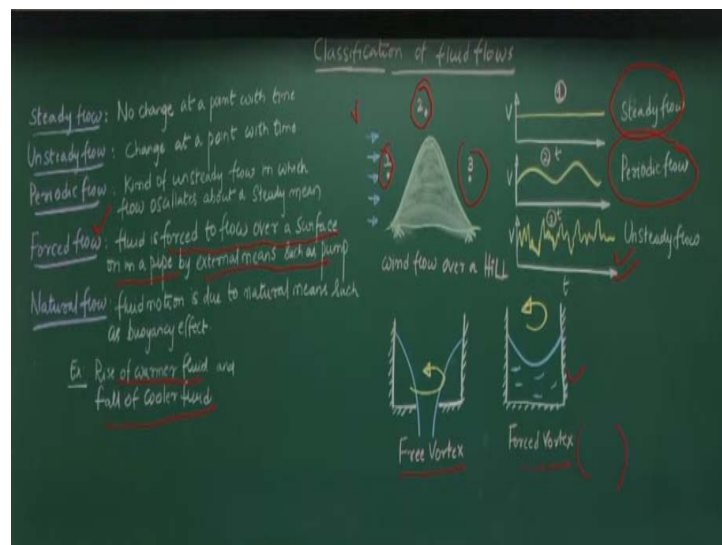 Classification of fluid flows
Steady flow: No change at a point with time
Unsteady flow: Change at a point with time
Periodic flow: Kind of unsteady flow in which
flow oscillates about a steady mean
Forced flow: fluid is forced to flow over a surface
or in a pipe by external means such as pump
Natural flow: fluid motion is due to natural means such
as buoyancy effect.
Ex: Rise of warmer fluid and
fall of cooler fluid
2
1
3
wind flow over a HiLL
1
V
Steady flow
2
t
V
Periodic flow
3
t
V
Unsteady flow
t
Free Vortex
Forced Vortex